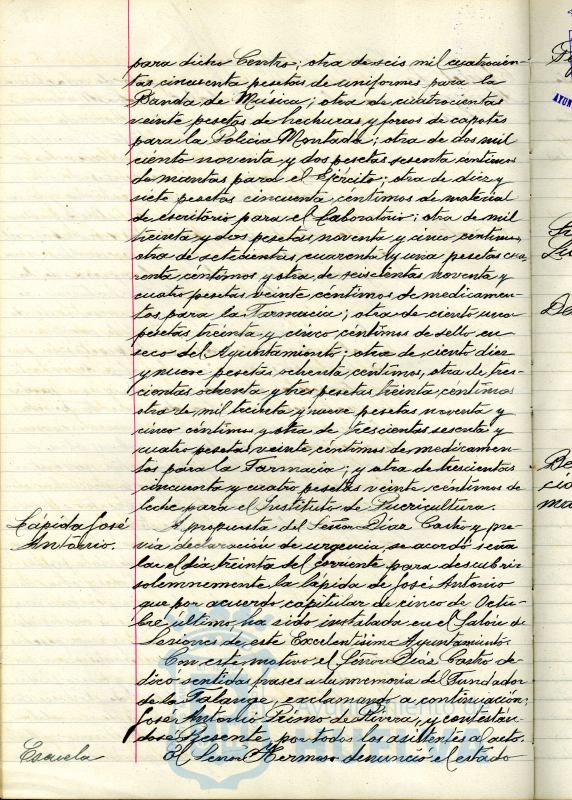 para dicho Centro; otra de seis mil cuatrocien-
tas cincuenta pesetas de uniformes para la
Banda de Música; otra de cuatrocientas
veinte pesetas de hechuras y forros de capotes
para la Policía Montada; otra de dos mil
ciento noventa y dos pesetas sesenta céntimos
de mantas para el Ejército; otra de diez y
siete pesetas cincuenta céntimos de material
de escritorio para el Laboratorio; otra de mil
treinta y dos pesetas noventa y cinco céntimos,
otra de setecientas cuarenta y una pesetas cua-
renta céntimos y otra de seiscientas noventa y
cuatro pesetas veinte céntimos de medicamen-
tos para la Farmacia; otra de ciento una
pesetas treinta y cinco céntimos de sello en
seco del Ayuntamiento; otra de ciento diez
y nueve pesetas ochenta céntimos, otra de tres-
cientas ochenta y tres pesetas treinta céntimos
otra de mil treinta y nueve pesetas noventa y
cinco céntimos y otra de trescientas sesenta y
cuatro pesetas veinte céntimos de medicamen-
tos para la Farmacia; y otra de trescientas
cincuenta y cuatro pesetas veinte céntimos de
leche para el Instituto de Puericultura.
Lápida José
Antonio.
A propuesta del Señor Díaz Castro y pre-
via declaración de urgencia, se acordó seña-
lar el día treinta del corriente para descubrir
solemnemente la lápida de José Antonio
que por acuerdo capitular de cinco de Octu-
bre último ha sido instalada en el Salón de
Sesiones de este Excelentísimo Ayuntamiento.
Con este motivo el Señor Díaz Castro de-
dicó sentidas frases a la memoria del Fundador
de la Falange, exclamando a continuación:
José Antonio Primo de Rivera, y contestán-
dose Presente, por todos los asistentes al acto.
Escuela
El Señor Hermoso denunció el estado
Ayuntamiento de
HUELVA